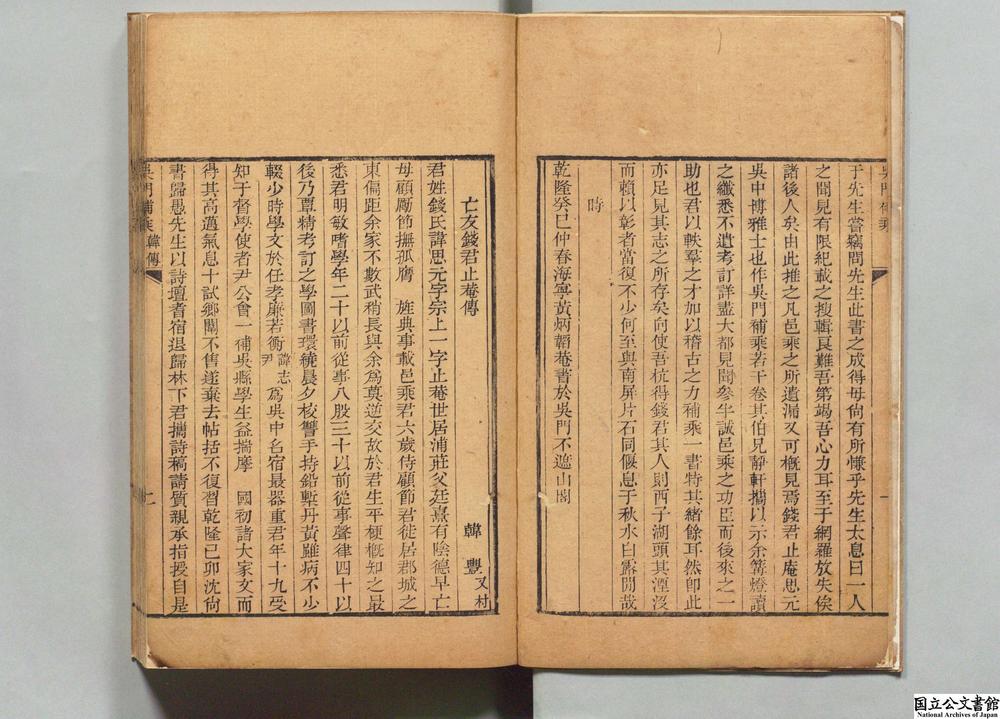 于先生嘗竊問先生此書之成得毋尙有所慊乎先生太息曰一人
之聞見有限紀載之搜輯良難吾第竭吾心力耳至于網羅放失俟
諸後人矣由此推之凡邑乘之所遺漏又可概見焉錢君止庵思元
吳中博雅士也作吳門補乘若干卷其伯兄靜軒攜以示余篝燈讀
之纖悉不遺考訂詳盡大都見聞參半誠邑乘之功臣而後來之一
助也君以軼羣之才加以稽古之力補乘一書特其緒餘耳然卽此
亦足見其志之所存矣向使吾杭得錢君其人則西子湖頭其湮沒
而賴以彰者當復不少何至與南屏片石同偃息于秋水白露間哉
時
乾隆癸巳仲春海寧黃炳韜菴書於吳門不遮山閣
亡友錢君止菴傳
韓豐又村
君姓錢氏諱思元字宗上一字止菴世居浦莊父廷熹有陰德早亡
母顧勵節撫孤膺 旌典事載邑乘君六歲侍顧節君徙居郡城之
東偏距余家不數武稍長與余爲莫逆交故於君生平梗概知之最
悉君明敏嗜學年二十以前從事八股三十以前從事聲律四十以
後乃覃精考訂之學圖書環繞晨夕校讐手持鉛槧丹黃雖病不少
輟少時學文於任孝廉若衡諱志尹爲吳中名宿最器重君年十九受
知于督學使者尹公會一補吳縣學生益揣摩 國初諸大家文而
得其高邁氣息十試鄉闈不售遂棄去帖括不復習乾隆己卯沈尙
書歸愚先生以詩壇耆宿退歸林下君攜詩稿請質親承指授自是
吳門補乘 韓傳
二
国立公文書館
National Archives of Japan